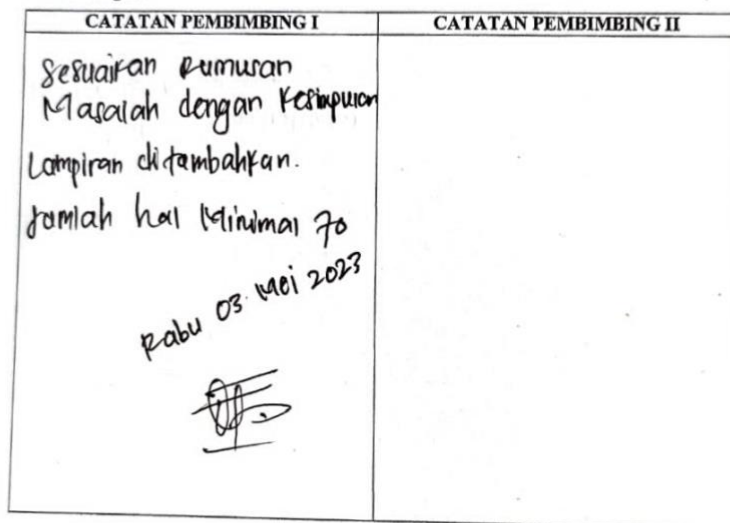 CATATAN PEMBIMBING I
CATATAN PEMBIMBING II
Sesuaikan Rumusan
Masalah dengan Kesimpulan
Lampiran ditambahkan.
Jumlah hal Minimal 70
Rabu 03 Mei 2023